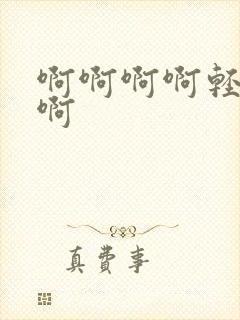 啊啊啊啊輕
啊
真費事